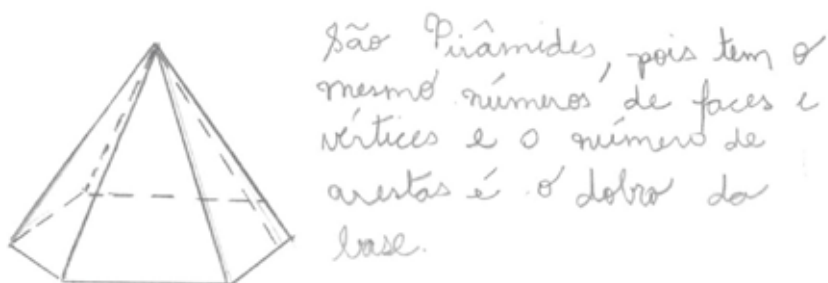 São Pirâmides, pois tem o
mesmo números de faces e
vértices e o número de
arestas é o dobro da
base.